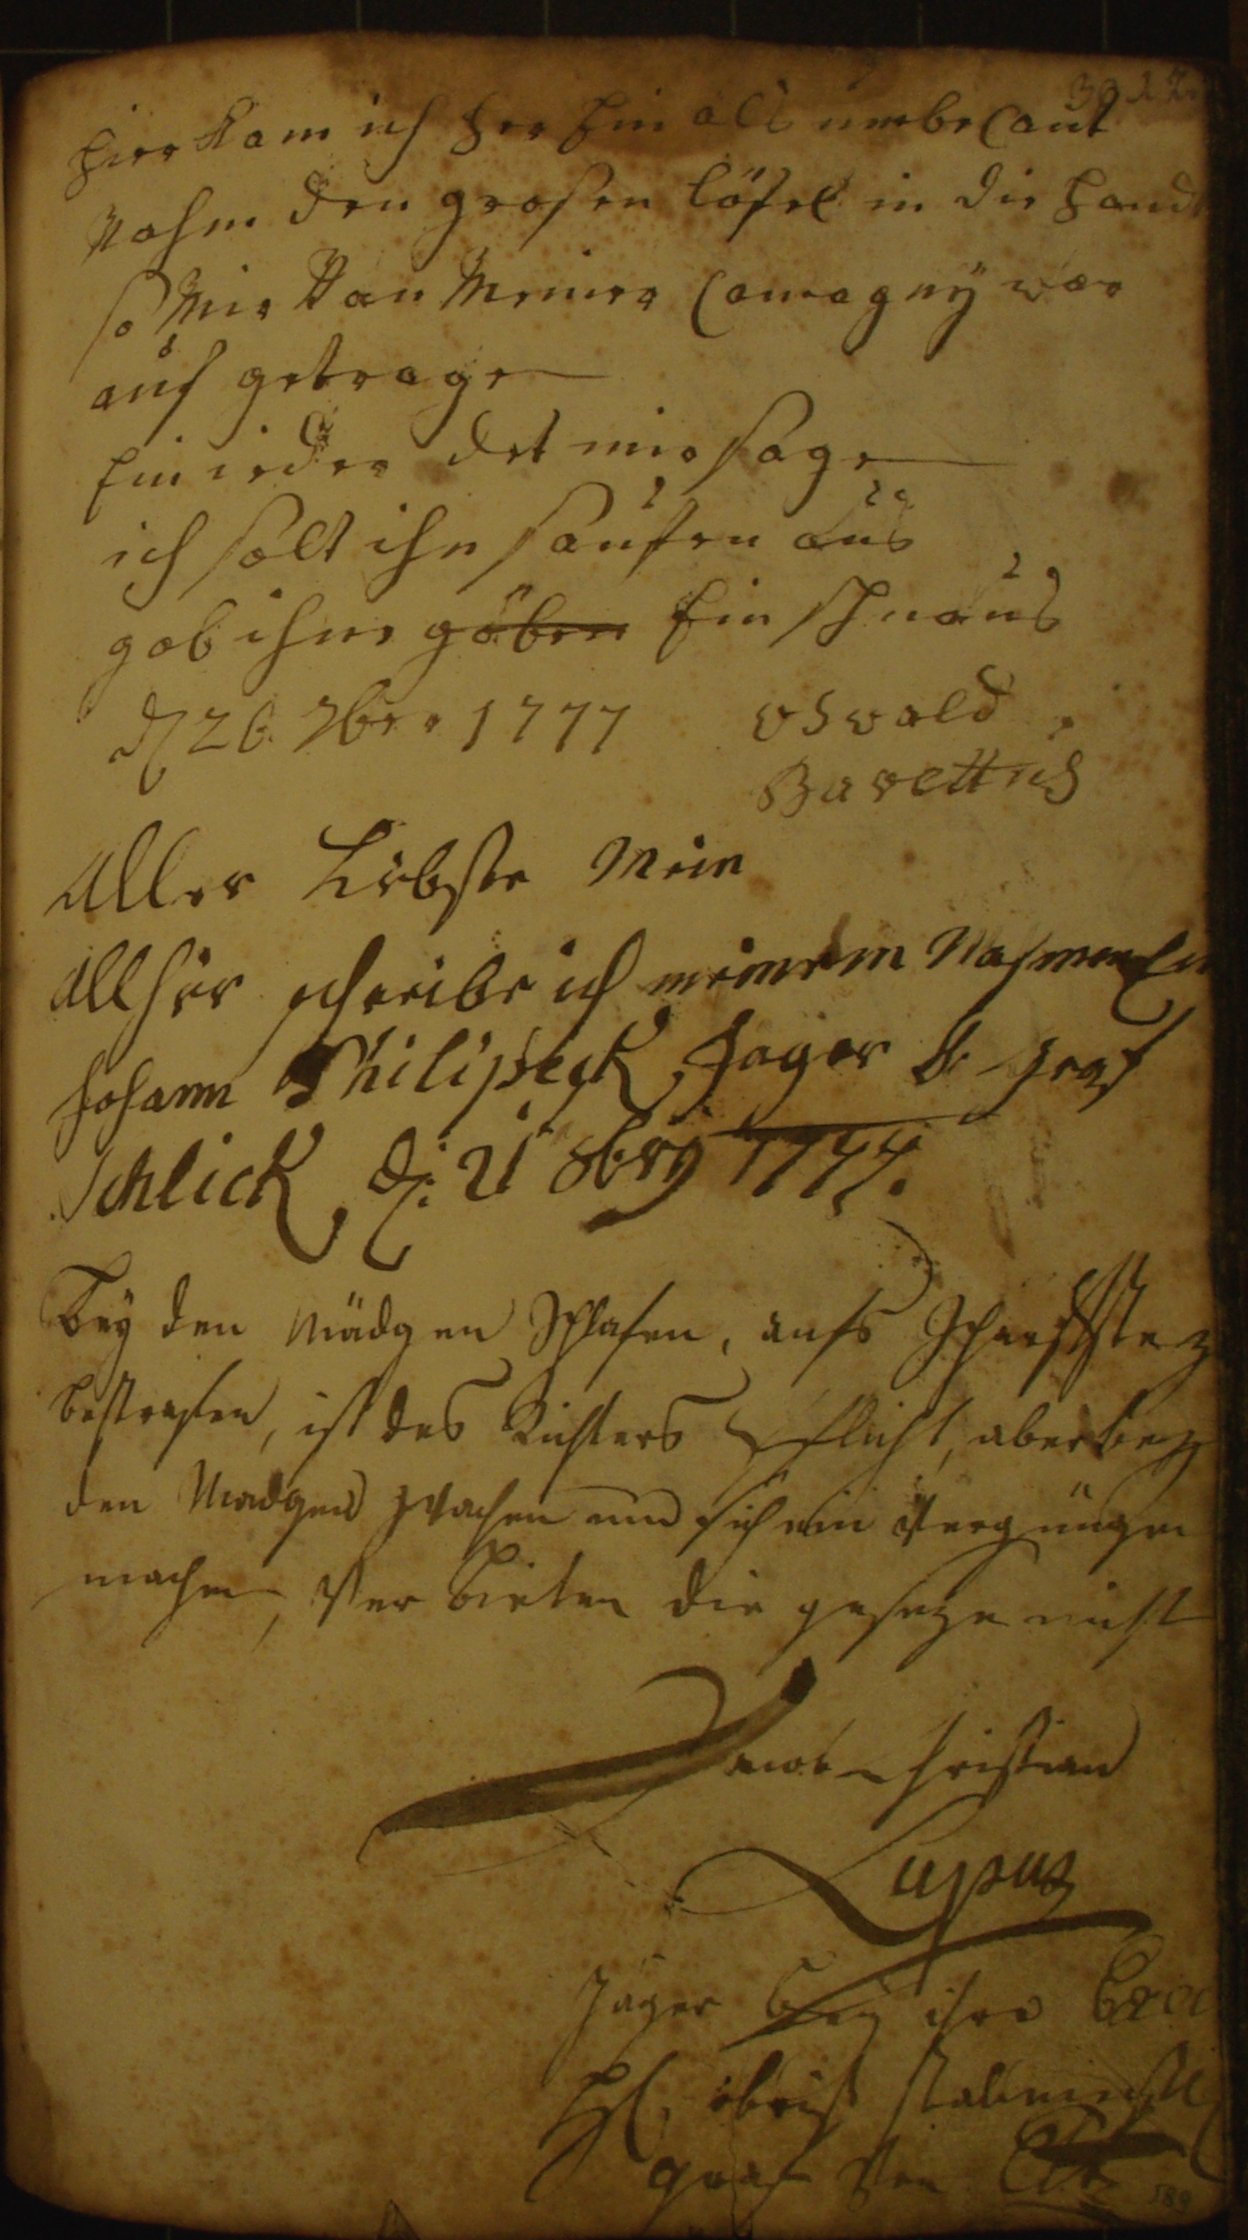 hier kam ich her hin als unbecant
Nahm den grosen löfel in die hand
so Mir Von Meiner Comagnÿ war
auf getrage
Ein ieder det mir sage
ich solt ihn saufen aus
gab ihme göben Ein schnaus
d 26. 7ber 1777 oswald
Bavettus
Aller Liebste Mein
Allhier schreibe ich meinem Nahmen Ein
Johann Philip Jager b. graf
Schlick d. 21 8brs 1777.
Beÿ den Mädgen Schlafen, aufs Scharfste z
bestrafen, ist des Richters Pflicht, aber beÿ
den Madgen Wachen und sich ein Vergnügen
machen, Ver bieten die geseze nicht
Christian
Lupus
Jäger beÿ ihro Exc
obrist stalmeist
graf Von
589